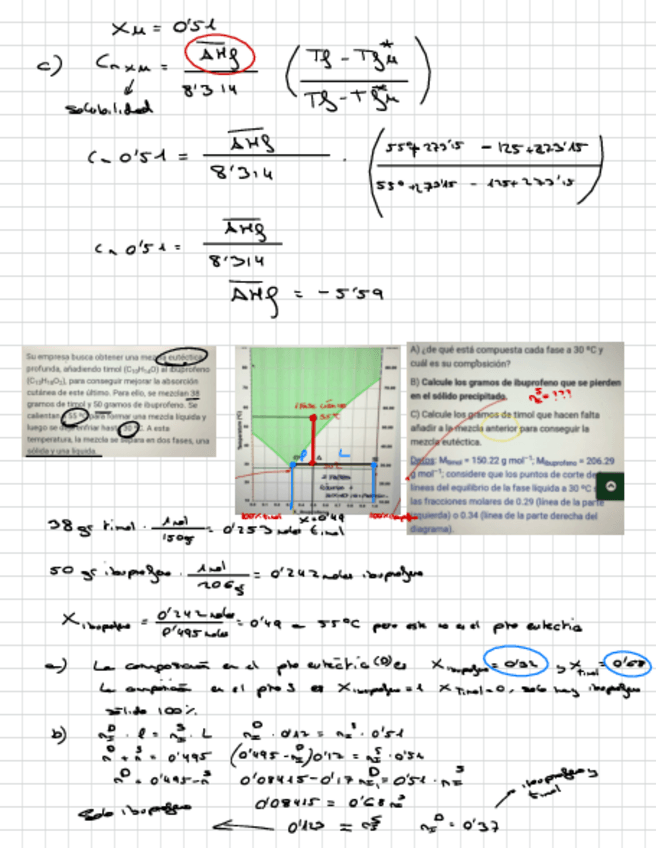 Xm = 0'51
c) Ln Xm = ΔHf / 8'314 (Tf - Tf*m / Tf - Tf*m)
solubilidad
Ln 0'51 = ΔHf / 8'314 · (55º+273'15 - 125+273'15 / 55º+273'15 - 125+273'15)
Ln 0'51 = ΔHf / 8'314
ΔHf = -5'59
Su empresa busca obtener una mezcla eutéctica
profunda, añadiendo timol (C₁₀H₁₄O) al ibuprofeno
(C₁₃H₁₈O₂), para conseguir mejorar la absorción
cutánea de este último. Para ello, se mezclan 38
gramos de timol y 50 gramos de ibuprofeno. Se
calientan a 55 ºC para formar una mezcla líquida y
luego se deja enfriar hasta 30 ºC. A esta
temperatura, la mezcla se separa en dos fases, una
sólida y una líquida.
L
x=0'49
A) ¿de qué está compuesta cada fase a 30 ºC y
cuál es su composición?
B) Calcule los gramos de ibuprofeno que se pierden
en el sólido precipitado.
= ???
C) Calcule los gramos de timol que hacen falta
añadir a la mezcla anterior para conseguir la
mezcla eutéctica.
Datos: Mtimol = 150.22 g mol⁻¹; Mibuprofeno = 206.29
g mol⁻¹; considere que los puntos de corte de
líneas del equilibrio de la fase líquida a 30 ºC
las fracciones molares de 0.29 (línea de la parte
izquierda) o 0.34 (línea de la parte derecha del
diagrama).
38 gr timol · 1 mol / 150g = 0'253 moles timol
50 gr ibuprofeno · 1 mol / 206g = 0'242 moles ibuprofeno
X ibuprofeno = 0'242 moles / 0'495 moles = 0'49 a 55ºC pero este no es el pto eutectico
a) La composición en el pto eutéctico (D) es X ibuprofeno = 0'32 y X timol = 0'68
La composición en el pto S es X ibuprofeno = 1 X timol = 0, solo hay ibuprofeno
sólido 100%
b) n D · l = n S · L n D · 0'17 = n S · 0'51
n D + n S = 0'495 (0'495 - n) 0'17 = n S · 0'51
n D = 0'495 - n S 0'08415 - 0'17 n = 0'51 · n S
ibuprofeno y
timol
0'08415 = 0'68 n S
Solo ibuprofeno
0'123 = n S n D = 0'37